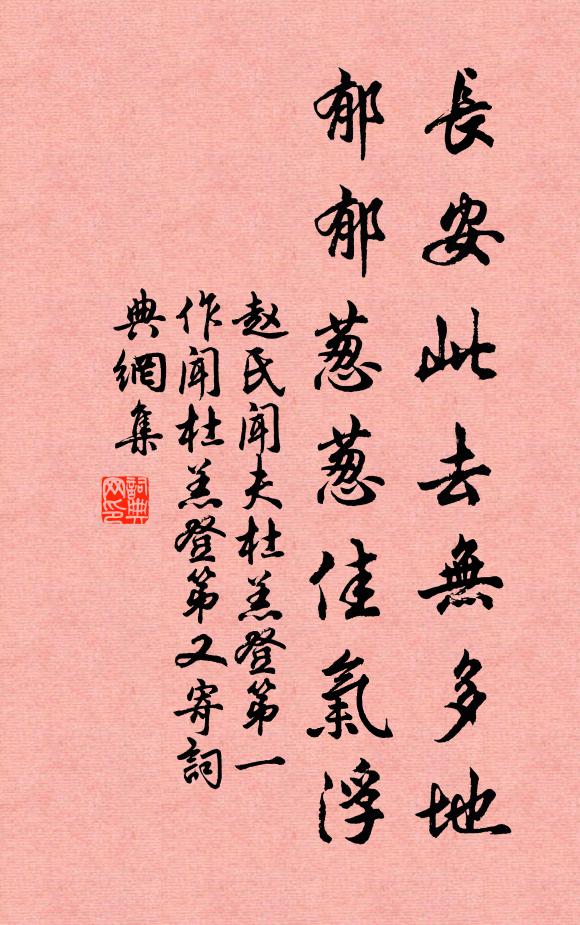 長安此去無多地
郁郁葱葱佳氣浮
赵氏闻夫杜羔登第一
作闻杜羔登第又寄詞
典網集
詞典
网印